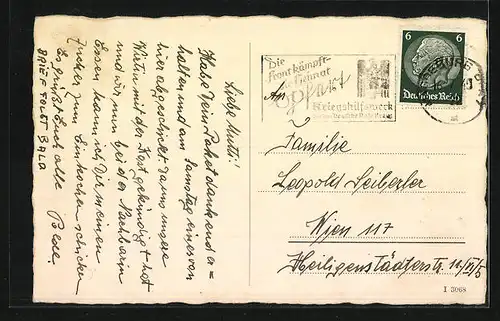 Liebe Mutti!
Habe Dein Paket dankend er=
halten und am Samstag eines von
hier abgeschickt. Da uns unsere
Wirtin mit der Kost gekündigt hat
und wir nun bei der Nachbarin
Essen kann ich Dir meinen
Zucker zum Einkochen schicken
Es grüßt Euch alle
BRIEF FOLGT BALD
Die
Front kämpft-
Heimat
opfert
Kriegshilfswerk
An
6 6
Deutsches Reich
Familie
Leopold Seiberler
Wien 117
Heiligenstädterstr.
I 3068